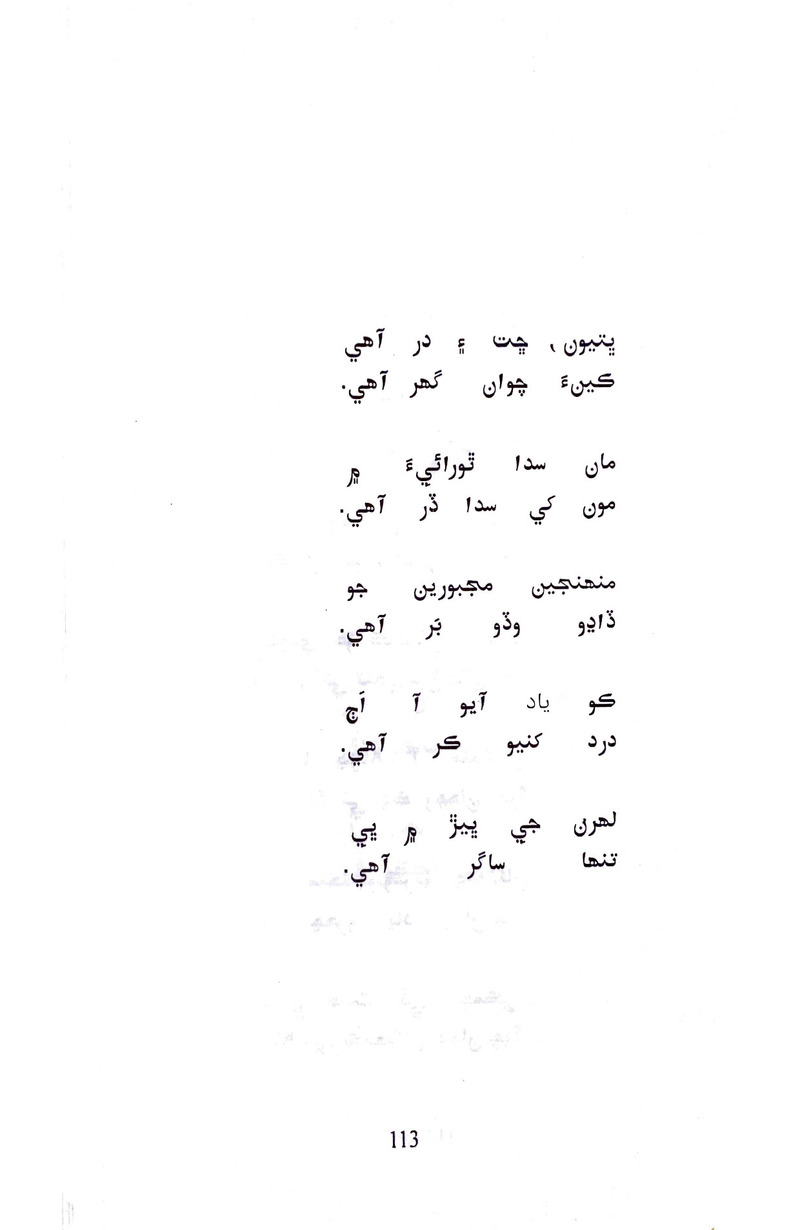 ڀتيون، ڇت ۽ در آهي
ڪيئن چوان گھر آهي.
مان سدا ٿورائيءَ ۾
مون کي سدا ڏر آهي.
منھنجين مجبورين جو
ڏاڍو وڏو بَر آهي.
ڪو ياد آيو آ اَڄ
درد کنيو ڪر آهي.
لھرن جي ڀيڙ ۾ ڀي
تنھا ساگر آهي.
113